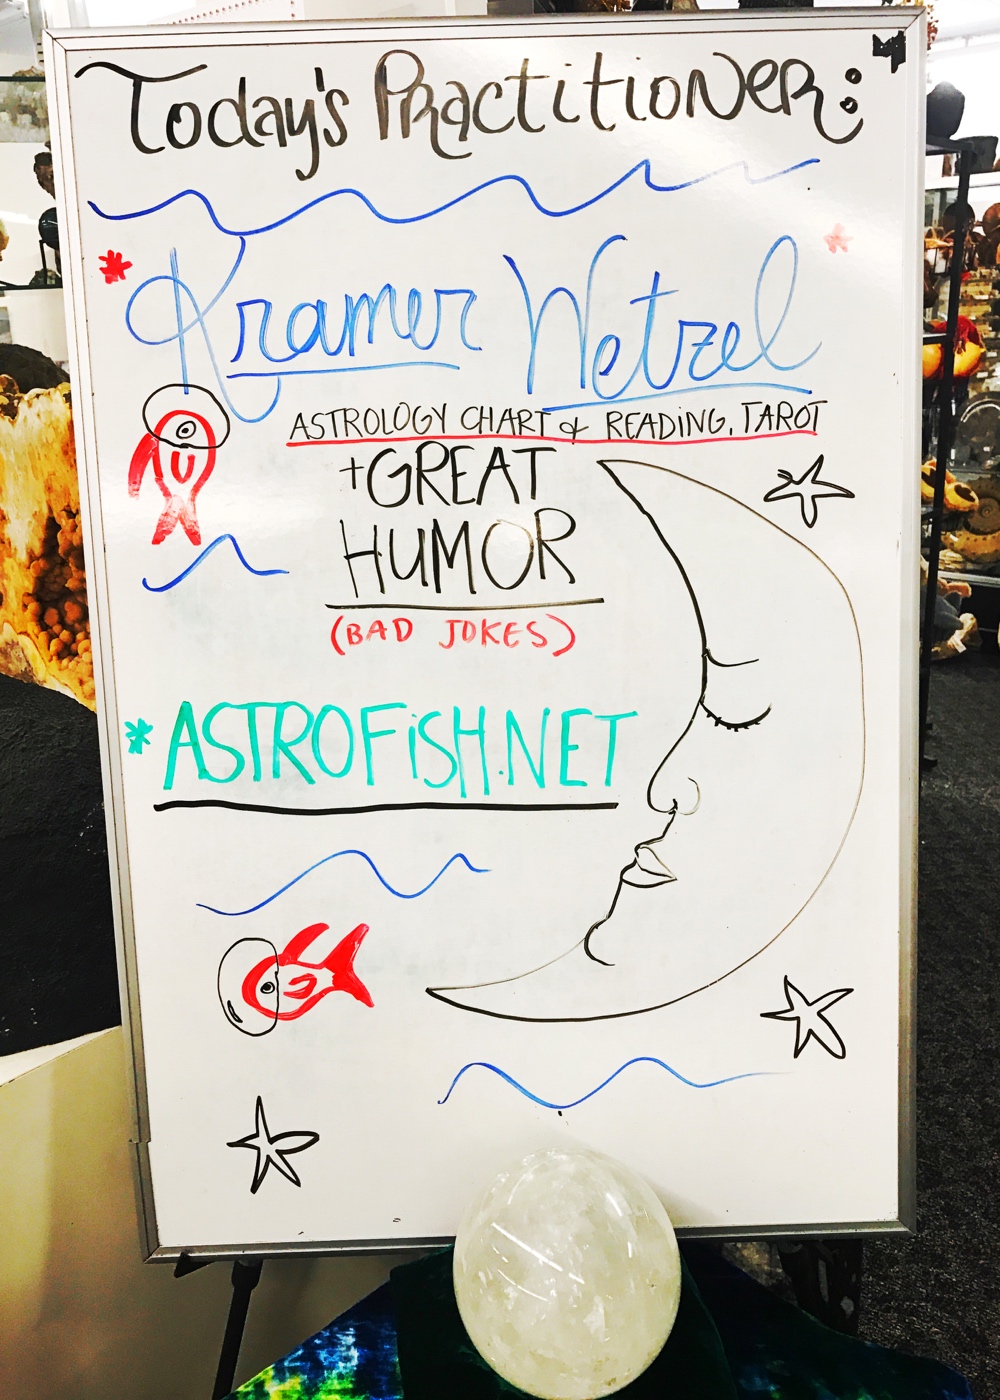 Today's Practitioner:
Kramer Wetzel
ASTROLOGY CHART & READING, TAROT
+GREAT
HUMOR
(BAD JOKES)
*ASTROFISH.NET